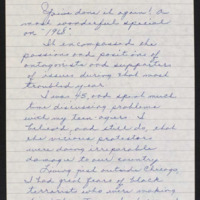 You've done it again! A
most wonderful special
on "1968".
It encompassed the
passions and positions of
antagonists and supporters
of issues during that most
troubled year.
I was 45, and spent much
time discussing problems
with my teen-agers. I
believed, and still do, that
the vicious protesters
were doing irreparable
damage to our country.
Living just outside Chicago,
I had real fears of black
terrorists who were making